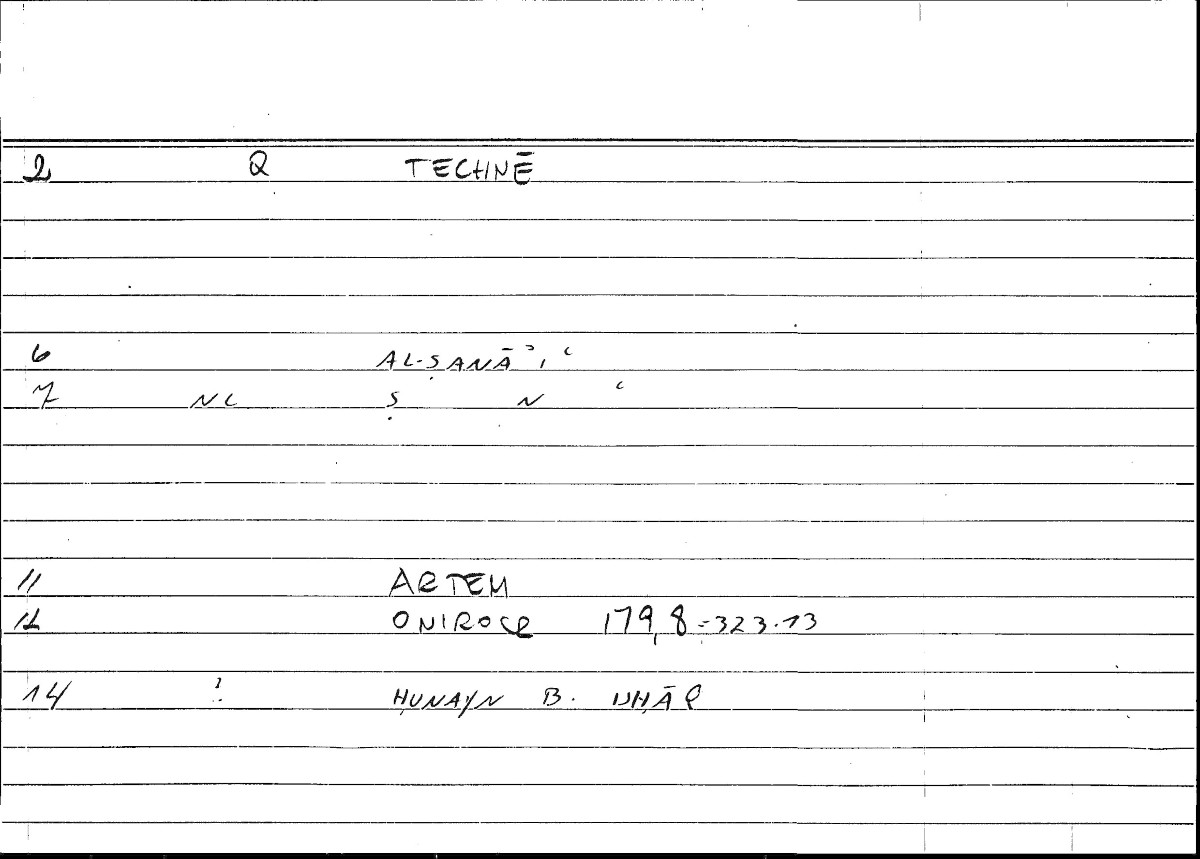 2 Q TECHNĒ
6 AL-ṢANĀʾIʿ
7 NC Ṣ N ʿ
11 ARTEM
12 ONIROCR 179,8-323.13
14 ? ḤUNAYN B. ISḤĀQ